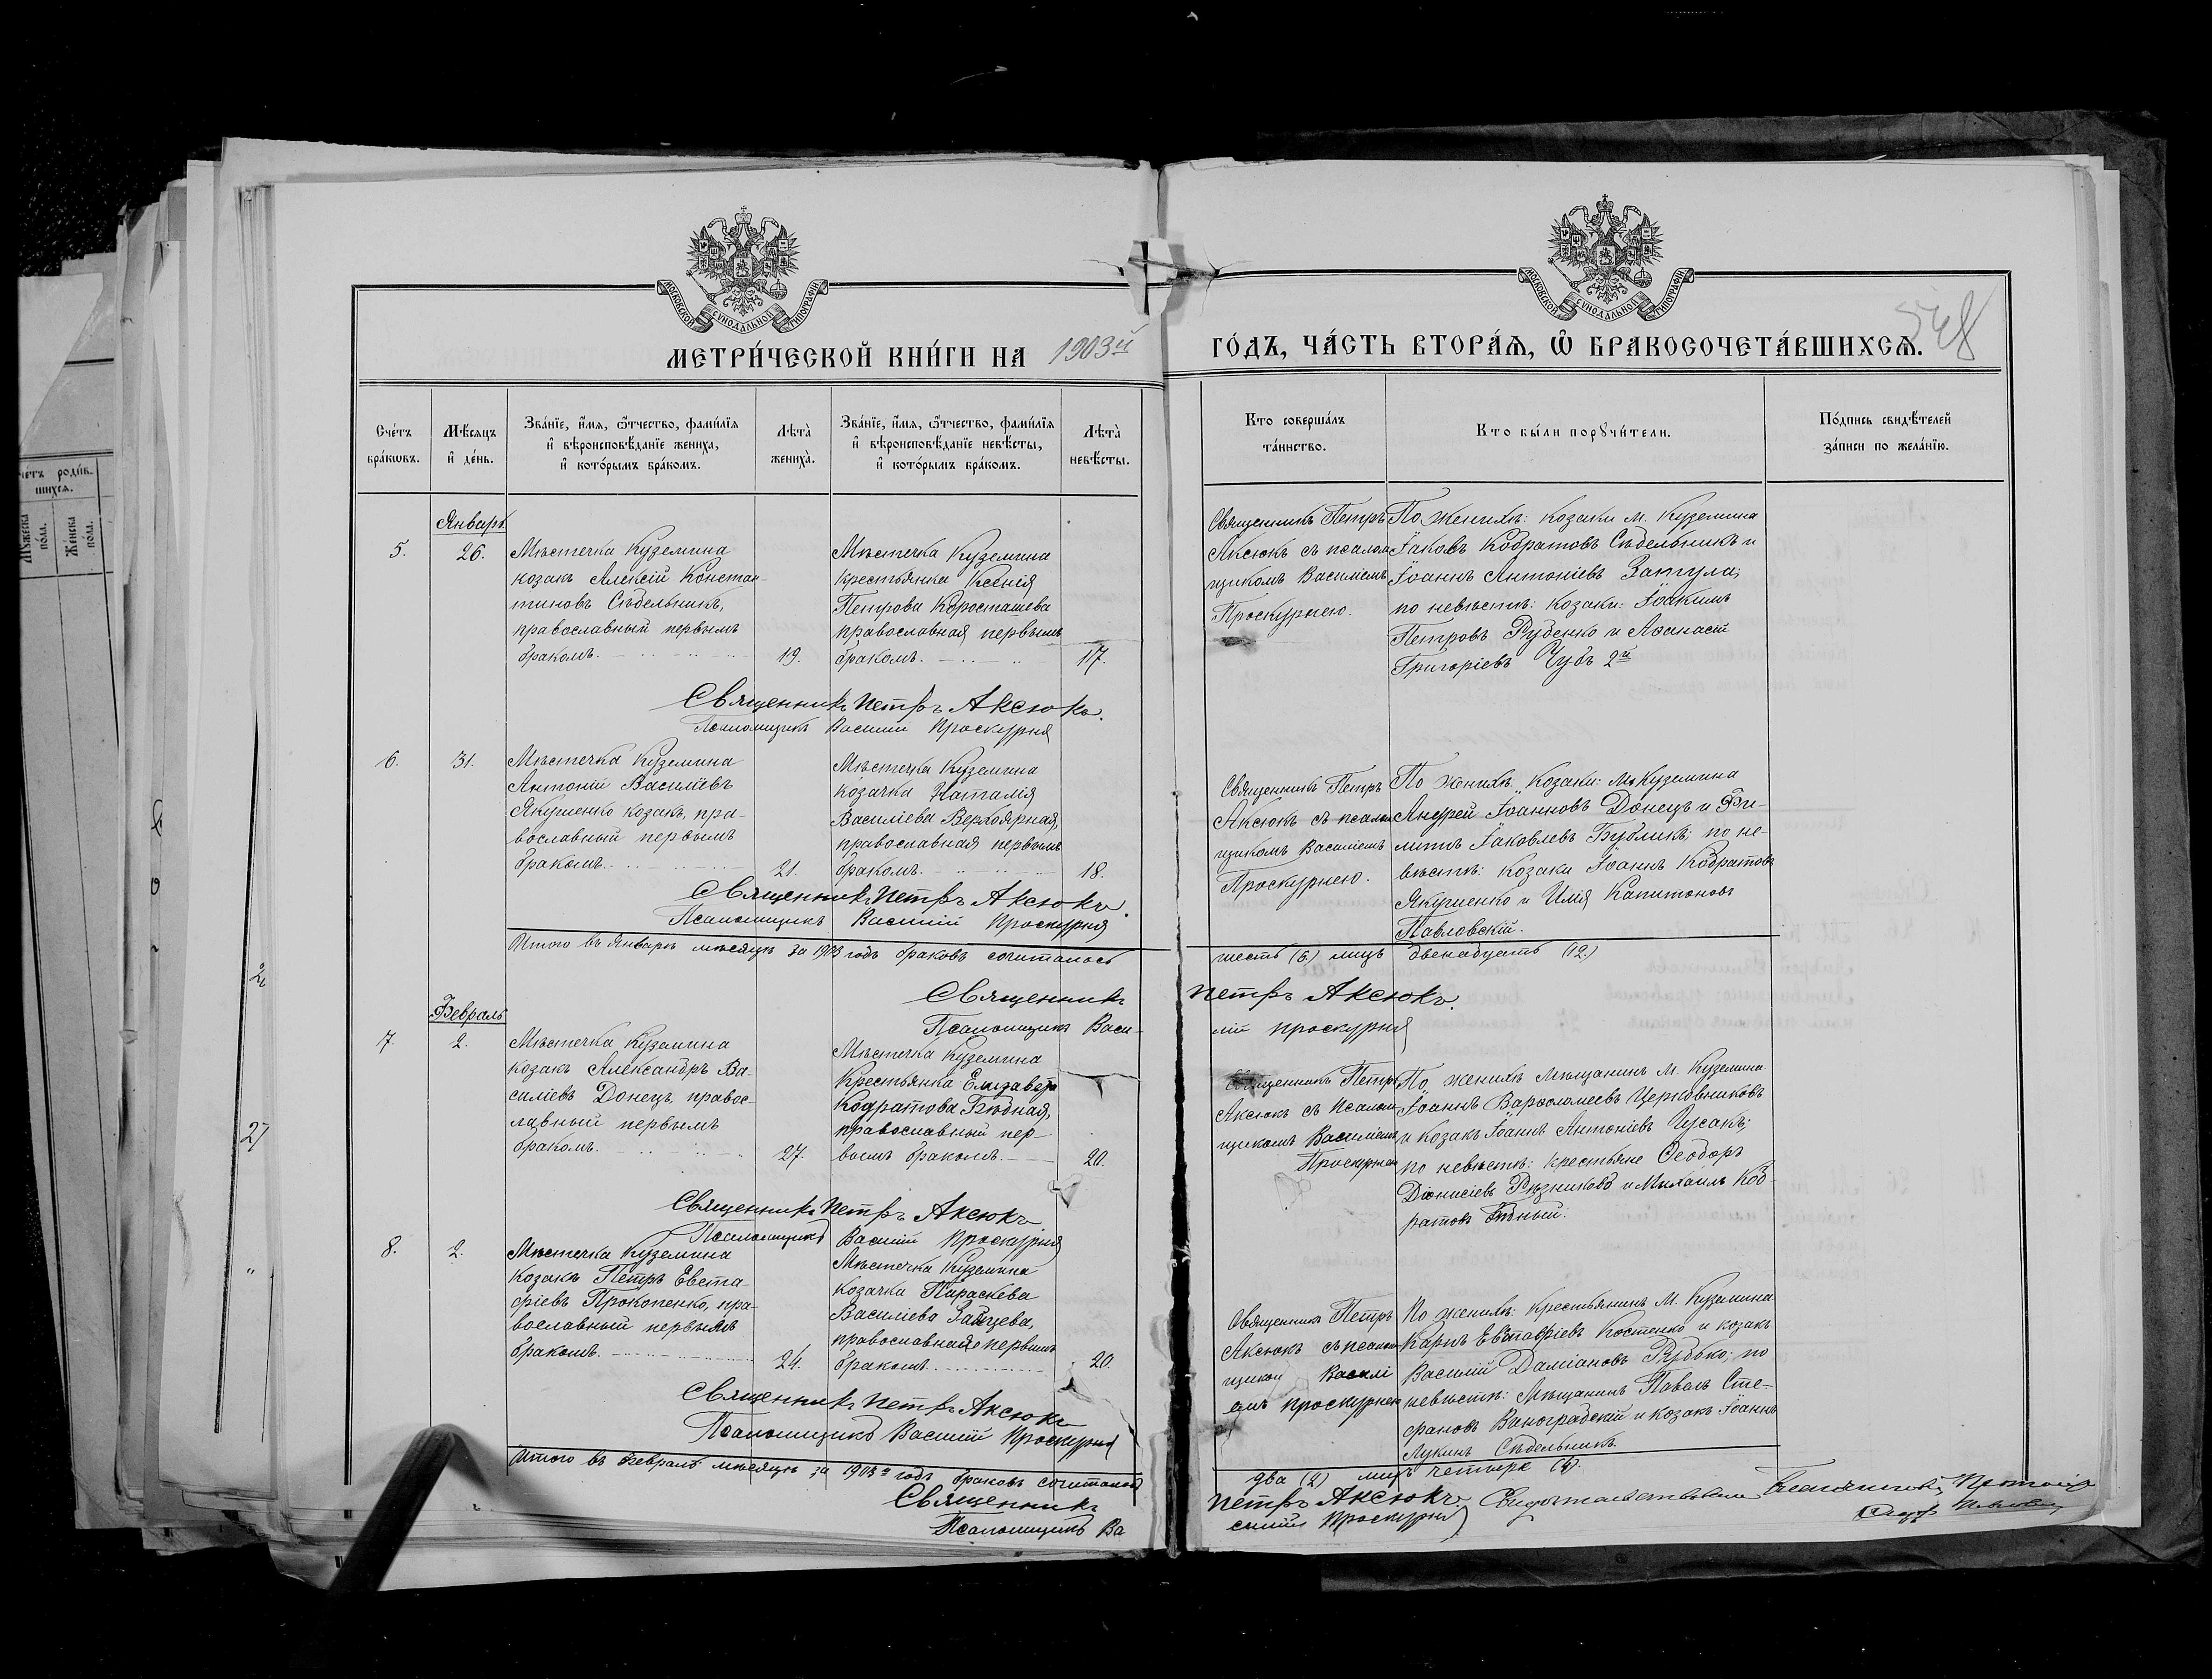 МОСКОВСКОЙ СѴНОДАЛЬНОЙ ТИПОГРАФІИ
МОСКОВСКОЙ СѴНОДАЛЬНОЙ ТИПОГРАФІИ
МЕТРИ́ЧЕСКОЙ КНИ́ГИ НА 1903й ГО́ДЪ, ЧА́СТЬ ВТОРА́Ѧ, Ѽ БРАКОСОЧЕТА́ВШИХСѦ.
Сче́тъ бра́кѡвъ.
Мѣ́сяцъ и де́нь.
Зва́нїе, и́мѧ, ѻ҆́тчество, фами́лїѧ и҆ вѣроисповѣ́данїе жениха̀, и҆ кото́рымъ бра́комъ.
Лѣта̀ жениха̀.
Зва́нїе, и́мѧ, ѻ҆́тчество, фами́лїѧ и҆ вѣроисповѣ́данїе невѣ́сты, и҆ кото́рымъ бра́комъ.
Лѣта̀ невѣ́сты.
Кто соверша́лъ та́инство.
Кто бы́ли порꙋчи́тели.
По́дпись свидѣ́телей за́писи по жела́нїю.
Январь
5.
26.
Мѣстечка Куземина
козакъ Алексій Констан-
тиновъ Сѣдельникъ,
православный первымъ
бракомъ.
19.
Мѣстечка Куземина
крестьянка Ксенія
Петрова Коросташева
православная первымъ
бракомъ.
17.
Священникъ Петръ
Аксюкъ съ псалом
щикомъ Василіемъ
Проскурнею.
По женихѣ: козаки м. Куземина
Іаковъ Кодратовъ Сѣдельникъ и
Іоаннъ Антоніевъ Запула;
по невѣстѣ: козаки: Іоакимъ
Петровъ Руденко и Аѳанасій
Григоріевъ Чубъ 2й
Священникъ Петръ Аксюкъ.
Псаломщикъ Василій Проскурня
6.
31.
Мѣстечка Куземина
Антоній Василіевъ
Якушенко козакъ, пра-
вославный первымъ
бракомъ.
21.
Мѣстечка Куземина
козачка Наталія
Василіева Верхоярная,
православная первымъ
бракомъ.
18.
Священникъ Петръ
Аксюкъ съ псалом
щикомъ Василіемъ
Проскурнею.
По женихѣ: Козаки: М. Куземина
Андрей Іоанновъ Донецъ и Фи-
липъ Іаковлевъ Бубликъ; по не-
вѣстѣ: козаки Іоаннъ Кодратовъ
Якушенко и Илія Капитоновъ
Павловскій.
Священникъ Петръ Аксюкъ.
Псаломщикъ Василій Проскурня
Итого въ Январѣ мѣсяцѣ за 1903 годъ браковъ сочиталось шесть (6) лицъ двенадцать (12.)
Священникъ Петръ Аксюкъ.
Псаломщикъ Васи-
лій Проскурня
Февраль
7.
2.
Мѣстечка Куземина
козакъ Александръ Ва-
силіевъ Донецъ, правос-
лавный первымъ
бракомъ.
27.
Мѣстечка Куземина
Крестьянка Елизавета
Кодратова Бѣдная,
православный пер-
вымъ бракомъ.
20.
Священникъ Петръ
Аксюкъ съ Псалом
щикомъ Василіемъ
Проскурнею
По женихѣ Мѣщанинъ М. Куземина
Іоаннъ Варѳоломеевъ Церковниковъ
и козакъ Іоаннъ Антоніевъ Гусакъ;
по невѣстѣ: крестьяне Ѳеодоръ
Діонисіевъ Рѣзниковъ и Михаилъ Код
ратовъ Бѣдный.
Священникъ Петръ Аксюкъ
Псаломщикъ Василій Проскурня
8.
2.
Мѣстечка Куземина
Козакъ Петръ Евста-
фіевъ Прокопенко, пра-
вославный первымъ
бракомъ.
24.
Мѣстечка Куземина
козачка Параскева
Василіева Зайцева,
православная первымъ
бракомъ.
20.
Священникъ Петръ
Аксюкъ съ псалом
щиком Василі
емъ Проскурнею
По женихѣ: Крестьянинъ М. Куземина
Карпъ Евстафіевъ Костенко и козакъ
Василій Даміановъ Рубко; по
невѣстѣ: Мѣщанинъ Павелъ Сте-
фановъ Виноградскій и козакъ Іоаннъ
Лукинъ Сѣдельникъ.
Священникъ Петръ Аксюкъ
Псаломщикъ Василій Проскурня
Итого въ Февралѣ мѣсяцѣ за 1903й годъ браковъ сочиталось два (2) лицъ четыре (4).
Священникъ Петръ Аксюкъ.
Псаломщикъ Ва
силій Проскурня